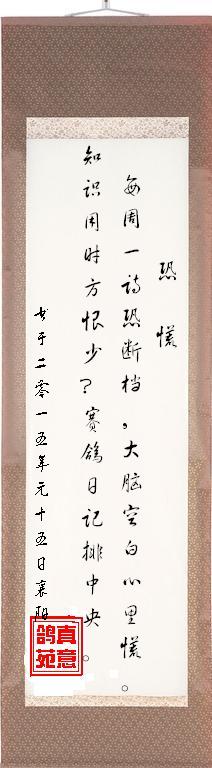 恐慌
每周一诗恐断档，大脑空白心里慌。
知识用时方恨少？赛鸽日记排中央。
书于二零一五年元十五日襄阳
真意鸽苑